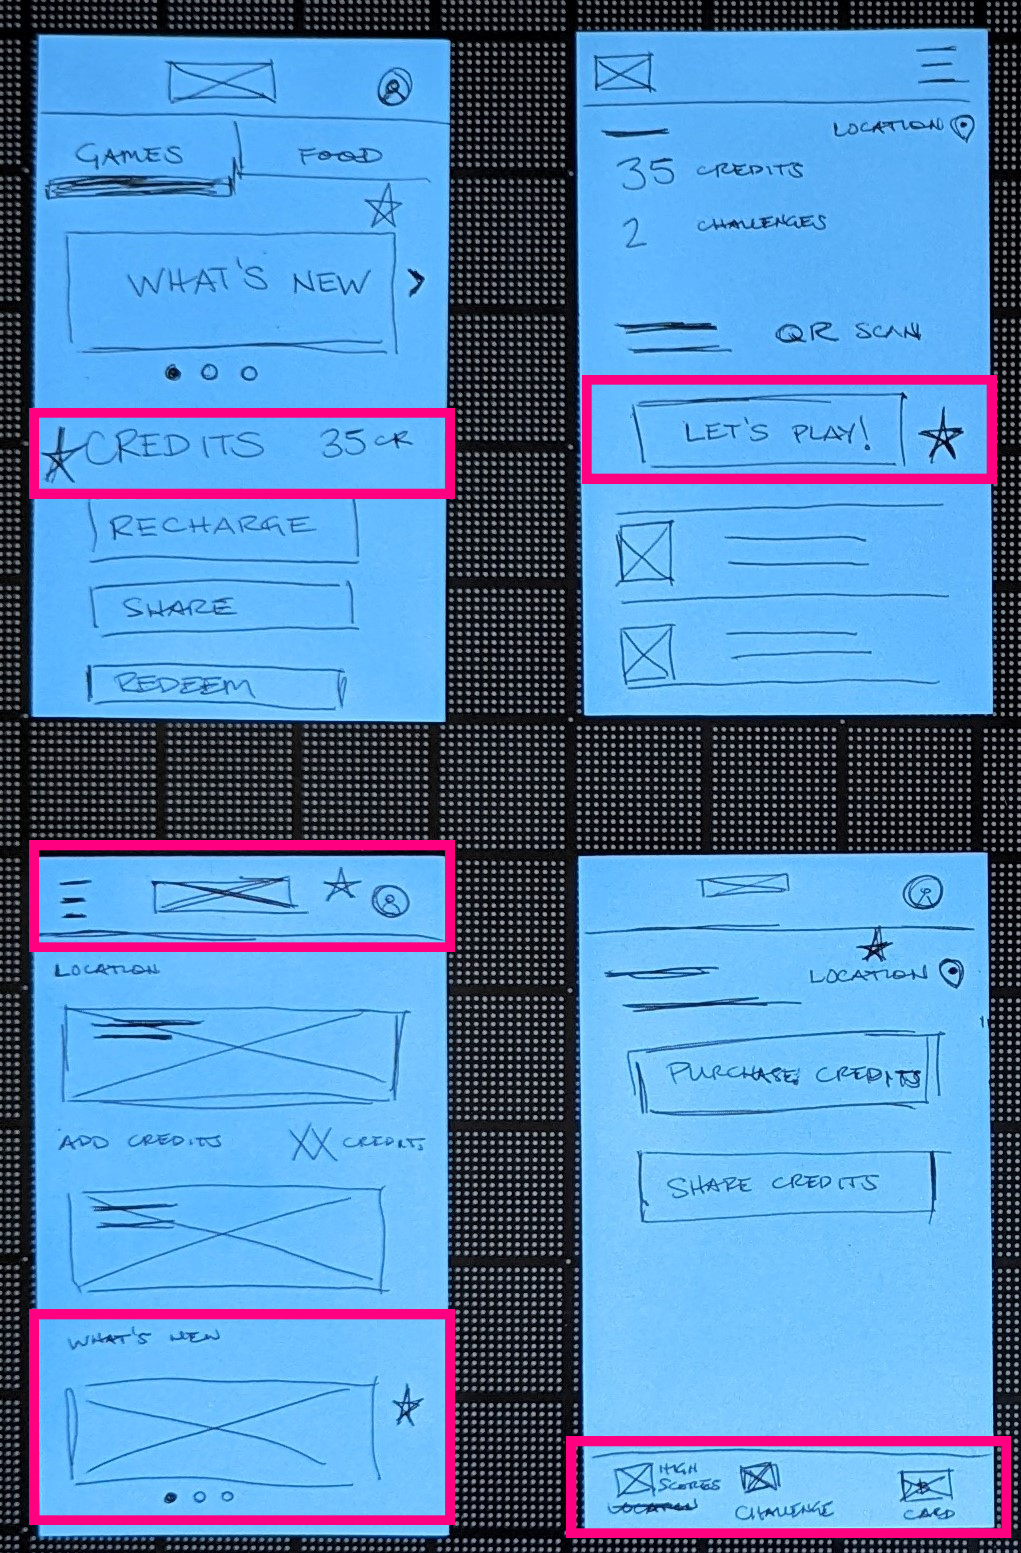 GAMES FOOD
WHAT'S NEW
CREDITS 35 CR
RECHARGE
SHARE
REDEEM
LOCATION
35 CREDITS
2 CHALLENGES
QR SCAN
LET'S PLAY!
LOCATION
ADD CREDITS XX CREDITS
WHAT'S NEW
LOCATION
PURCHASE CREDITS
SHARE CREDITS
HIGH
SCORES
LOCATION CHALLENGE CARD